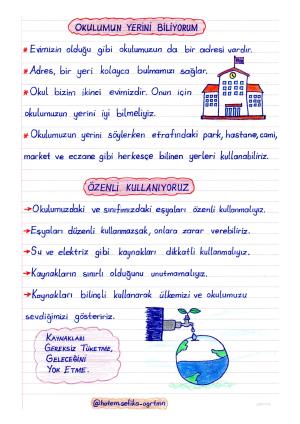 OKULUMUN YERİNİ BİLİYORUM
* Evimizin olduğu gibi okulumuzun da bir adresi vardır.
* Adres, bir yeri kolayca bulmamızı sağlar.
* Okul bizim ikinci evimizdir. Onun için
okulumuzun yerini iyi bilmeliyiz.
* Okulumuzun yerini söylerken etrafındaki park, hastane, cami,
market ve eczane gibi herkesçe bilinen yerleri kullanabiliriz.
ÖZENLİ KULLANIYORUZ
→Okulumuzdaki ve sınıfımızdaki eşyaları özenli kullanmalıyız.
→Eşyaları düzenli kullanmazsak, onlara zarar verebiliriz.
→Su ve elektriz gibi kaynakları dikkatli kullanmalıyız.
→Kaynakların sınırlı olduğunu unutmamalıyız.
→Kaynakları bilinçli kullanarak ülkemizi ve okulumuzu
sevdiğimizi gösteririz.
KAYNAKLARI
GEREKSİZ TÜKETME,
GELECEĞİNİ
YOK ETME.
@hatem.sefika_ogrtmn